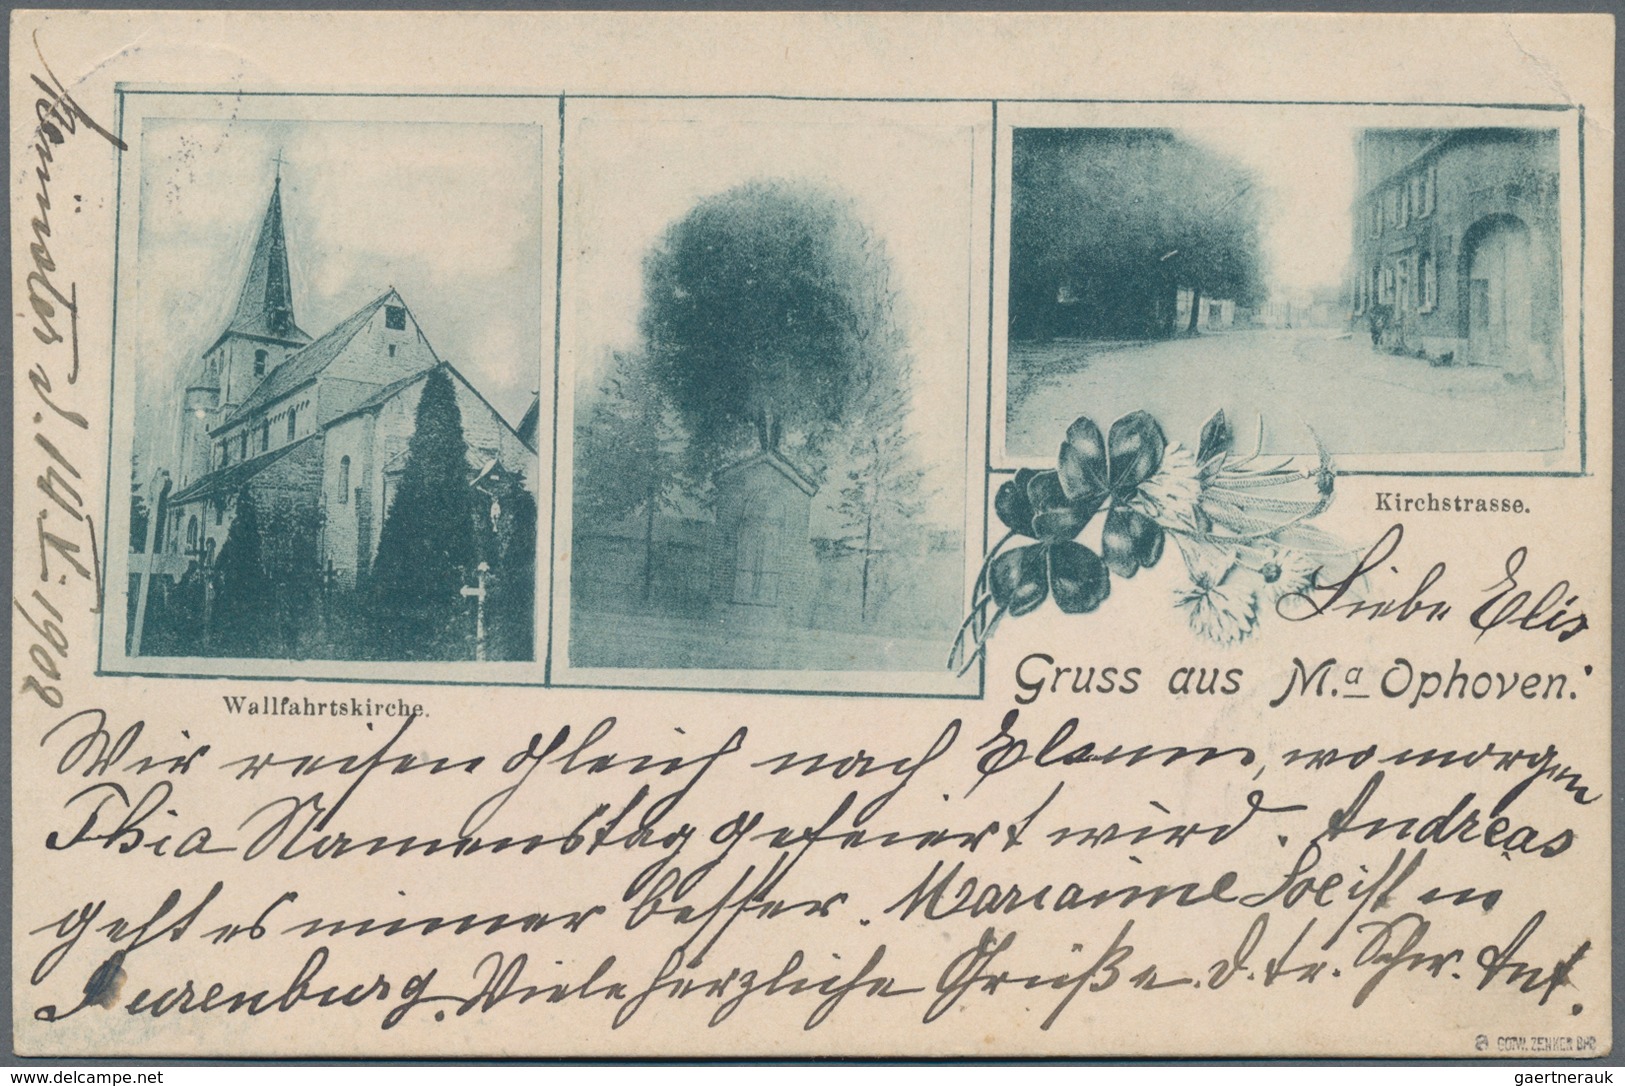 Wallfahrtskirche.
Kirchstrasse.
Liebe Elis
Gruss aus M.a Ophoven.
Wir reisen gleich nach, wo morgen
Thia Namenstag gefeiert wird. Andreas
geht es immer besser. Marianne ist in
Viele herzliche Grüße d. tr. Schw. Ant.
d. 14.V.1902
GOTW. ZENKER
delcampe.net
gaertnerauk